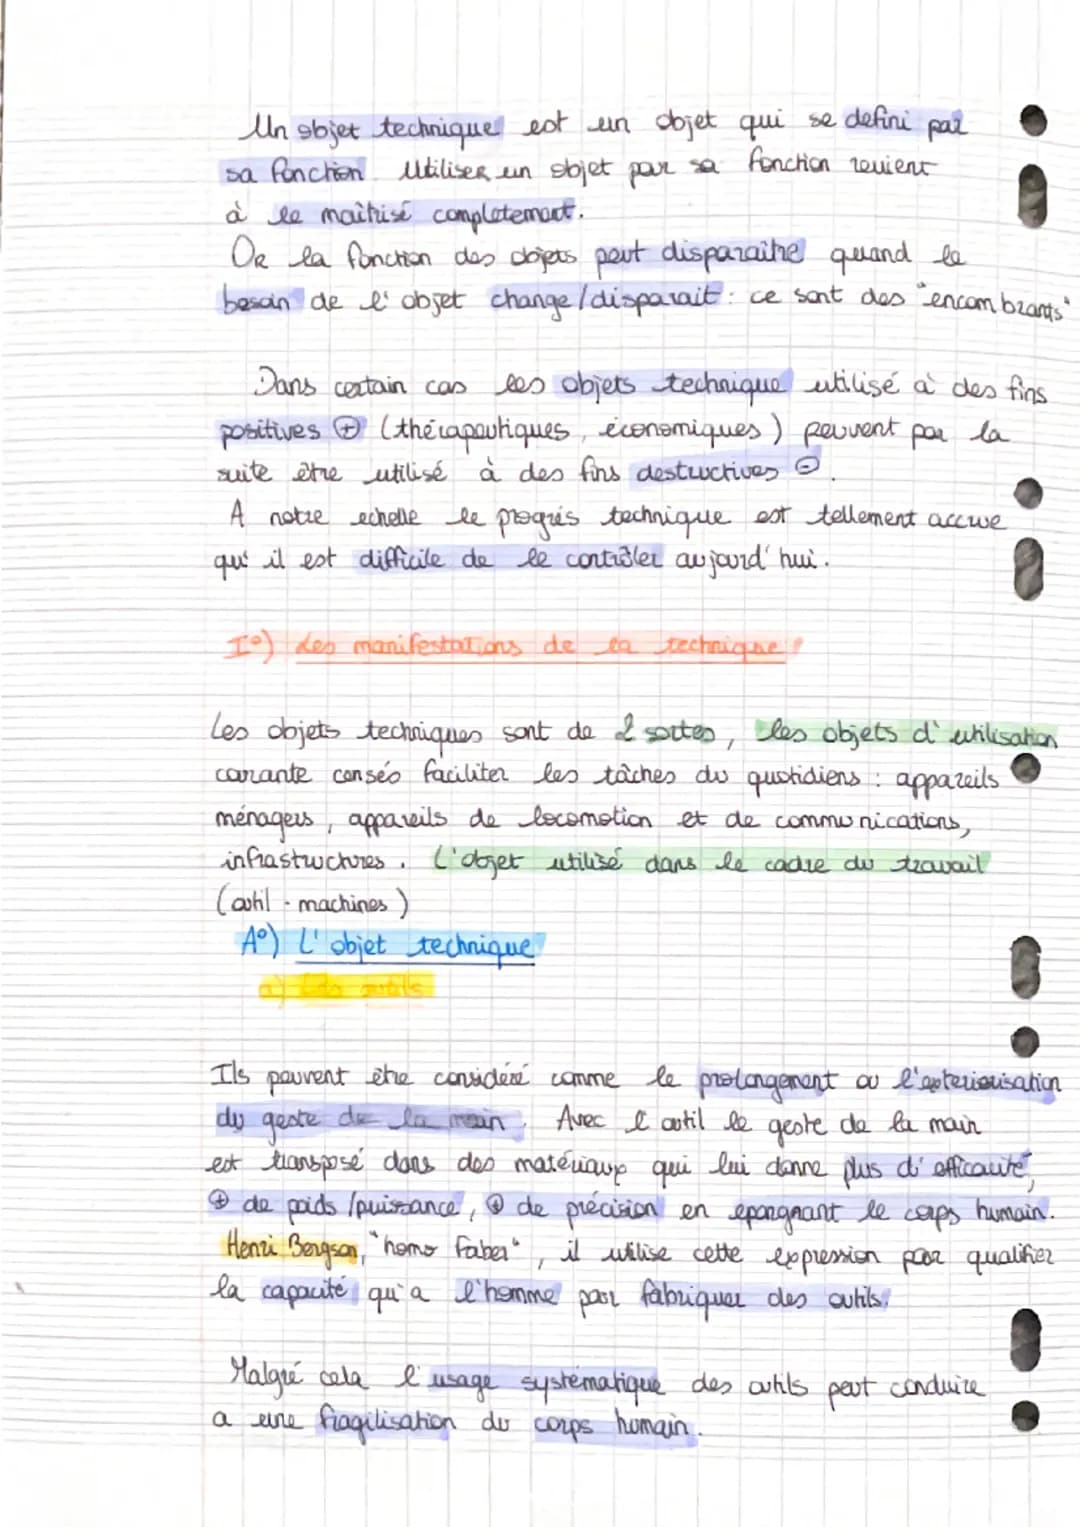 Un objet technique est un objet qui se defini par
sa fonction. Utiliser un objet par sa fonction revient
à le maîtrisé completement.
Or la fonction des objets peut disparaître quand le
besoin de l'objet change/disparait : ce sont des "encombrants"
Dans certain cas les objets technique utilisé à des fins
positives ⊕ (thérapeutiques, économiques) peuvent par la
suite être utilisé à des fins destructives ⊖.
A notre echelle le progrès technique est tellement accrue
qu'il est difficile de le contrôler aujourd'hui.
I°) Les manifestations de la technique
Les objets techniques sont de 2 sortes, les objets d'utilisation
courante censés faciliter les tâches du quotidiens : appareils
ménagers, appareils de locomotion et de communications,
infrastructures. L'objet utilisé dans le cadre du travail
(outil - machines)
A°) L'objet technique
a) Les outils
Ils peuvent être considéré comme le prolongement ou l'exteriorisation
du geste de la main. Avec l'outil le geste de la main
est transposé dans des matériaux qui lui donne plus d'efficacité,
⊕ de poids/puissance, ⊕ de précision en epargnant le corps humain.
Henri Bergson, "homo faber", il utilise cette expression pour qualifier
la capacité qu'a l'homme pour fabriquer des outils.
Malgré cela l'usage systématique des outils peut conduire
a une fragilisation du corps humain.